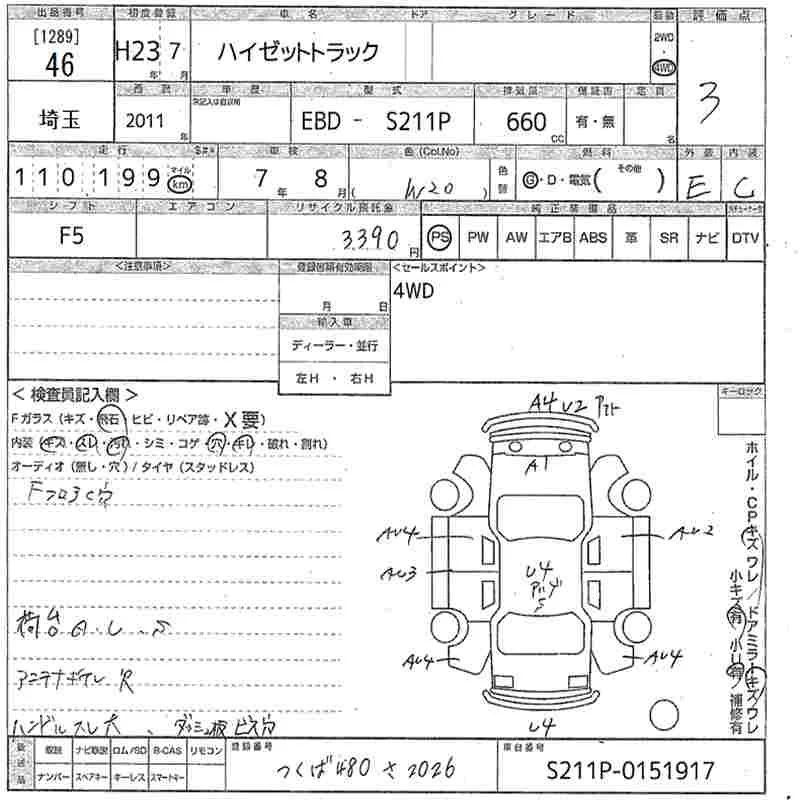 出品番号 初度登録 車名 ドア グレード 駆動 評価点
[1289]
46
H23年 7月 ハイゼットトラック 2WD・4WD 3
西暦 車歴 型式 排気量 保証書 定員
埼玉 2011年 EBD - S211P 660cc 有・無 名
走行 車検 色(Col.No) 燃料 外装 内装
110,199 マイル km 7年 8月 ( W20 ) 色替 G・D・電気( その他 ) E C
シフト エアコン リサイクル預託金 純正装備品
F5 3390円 PS PW AW エアB ABS 革 SR ナビ DTV
<注意事項> 登録書類有効期限 <セールスポイント>
月 日 4WD
輸入車
ディーラー・並行
左H・右H
<検査員記入欄> キーロック
Fガラス(キズ・飛石・ヒビ・リペア跡・X要)
内装(キズ・スレ・汚れ・シミ・コゲ・穴・キレ・破れ・割れ)
オーディオ(無し・穴)/タイヤ(スタッドレス)
Fフロアc穴
A4 U2
A1
AU4 AU2
AU3 U4
AU4 AU4
U4
荷台
ハンドルスレ大、ダッシュ板ビス穴
ホイル・CPキズ ワレ/ドアミラーキズワレ
小キズ有 小U有/補修有
取説 ナビ取説 ロム/SD B-CAS リモコン 登録番号 車台番号
ナンバー スペアキー キーレス スマートキー つくば480さ2026 S211P-0151917